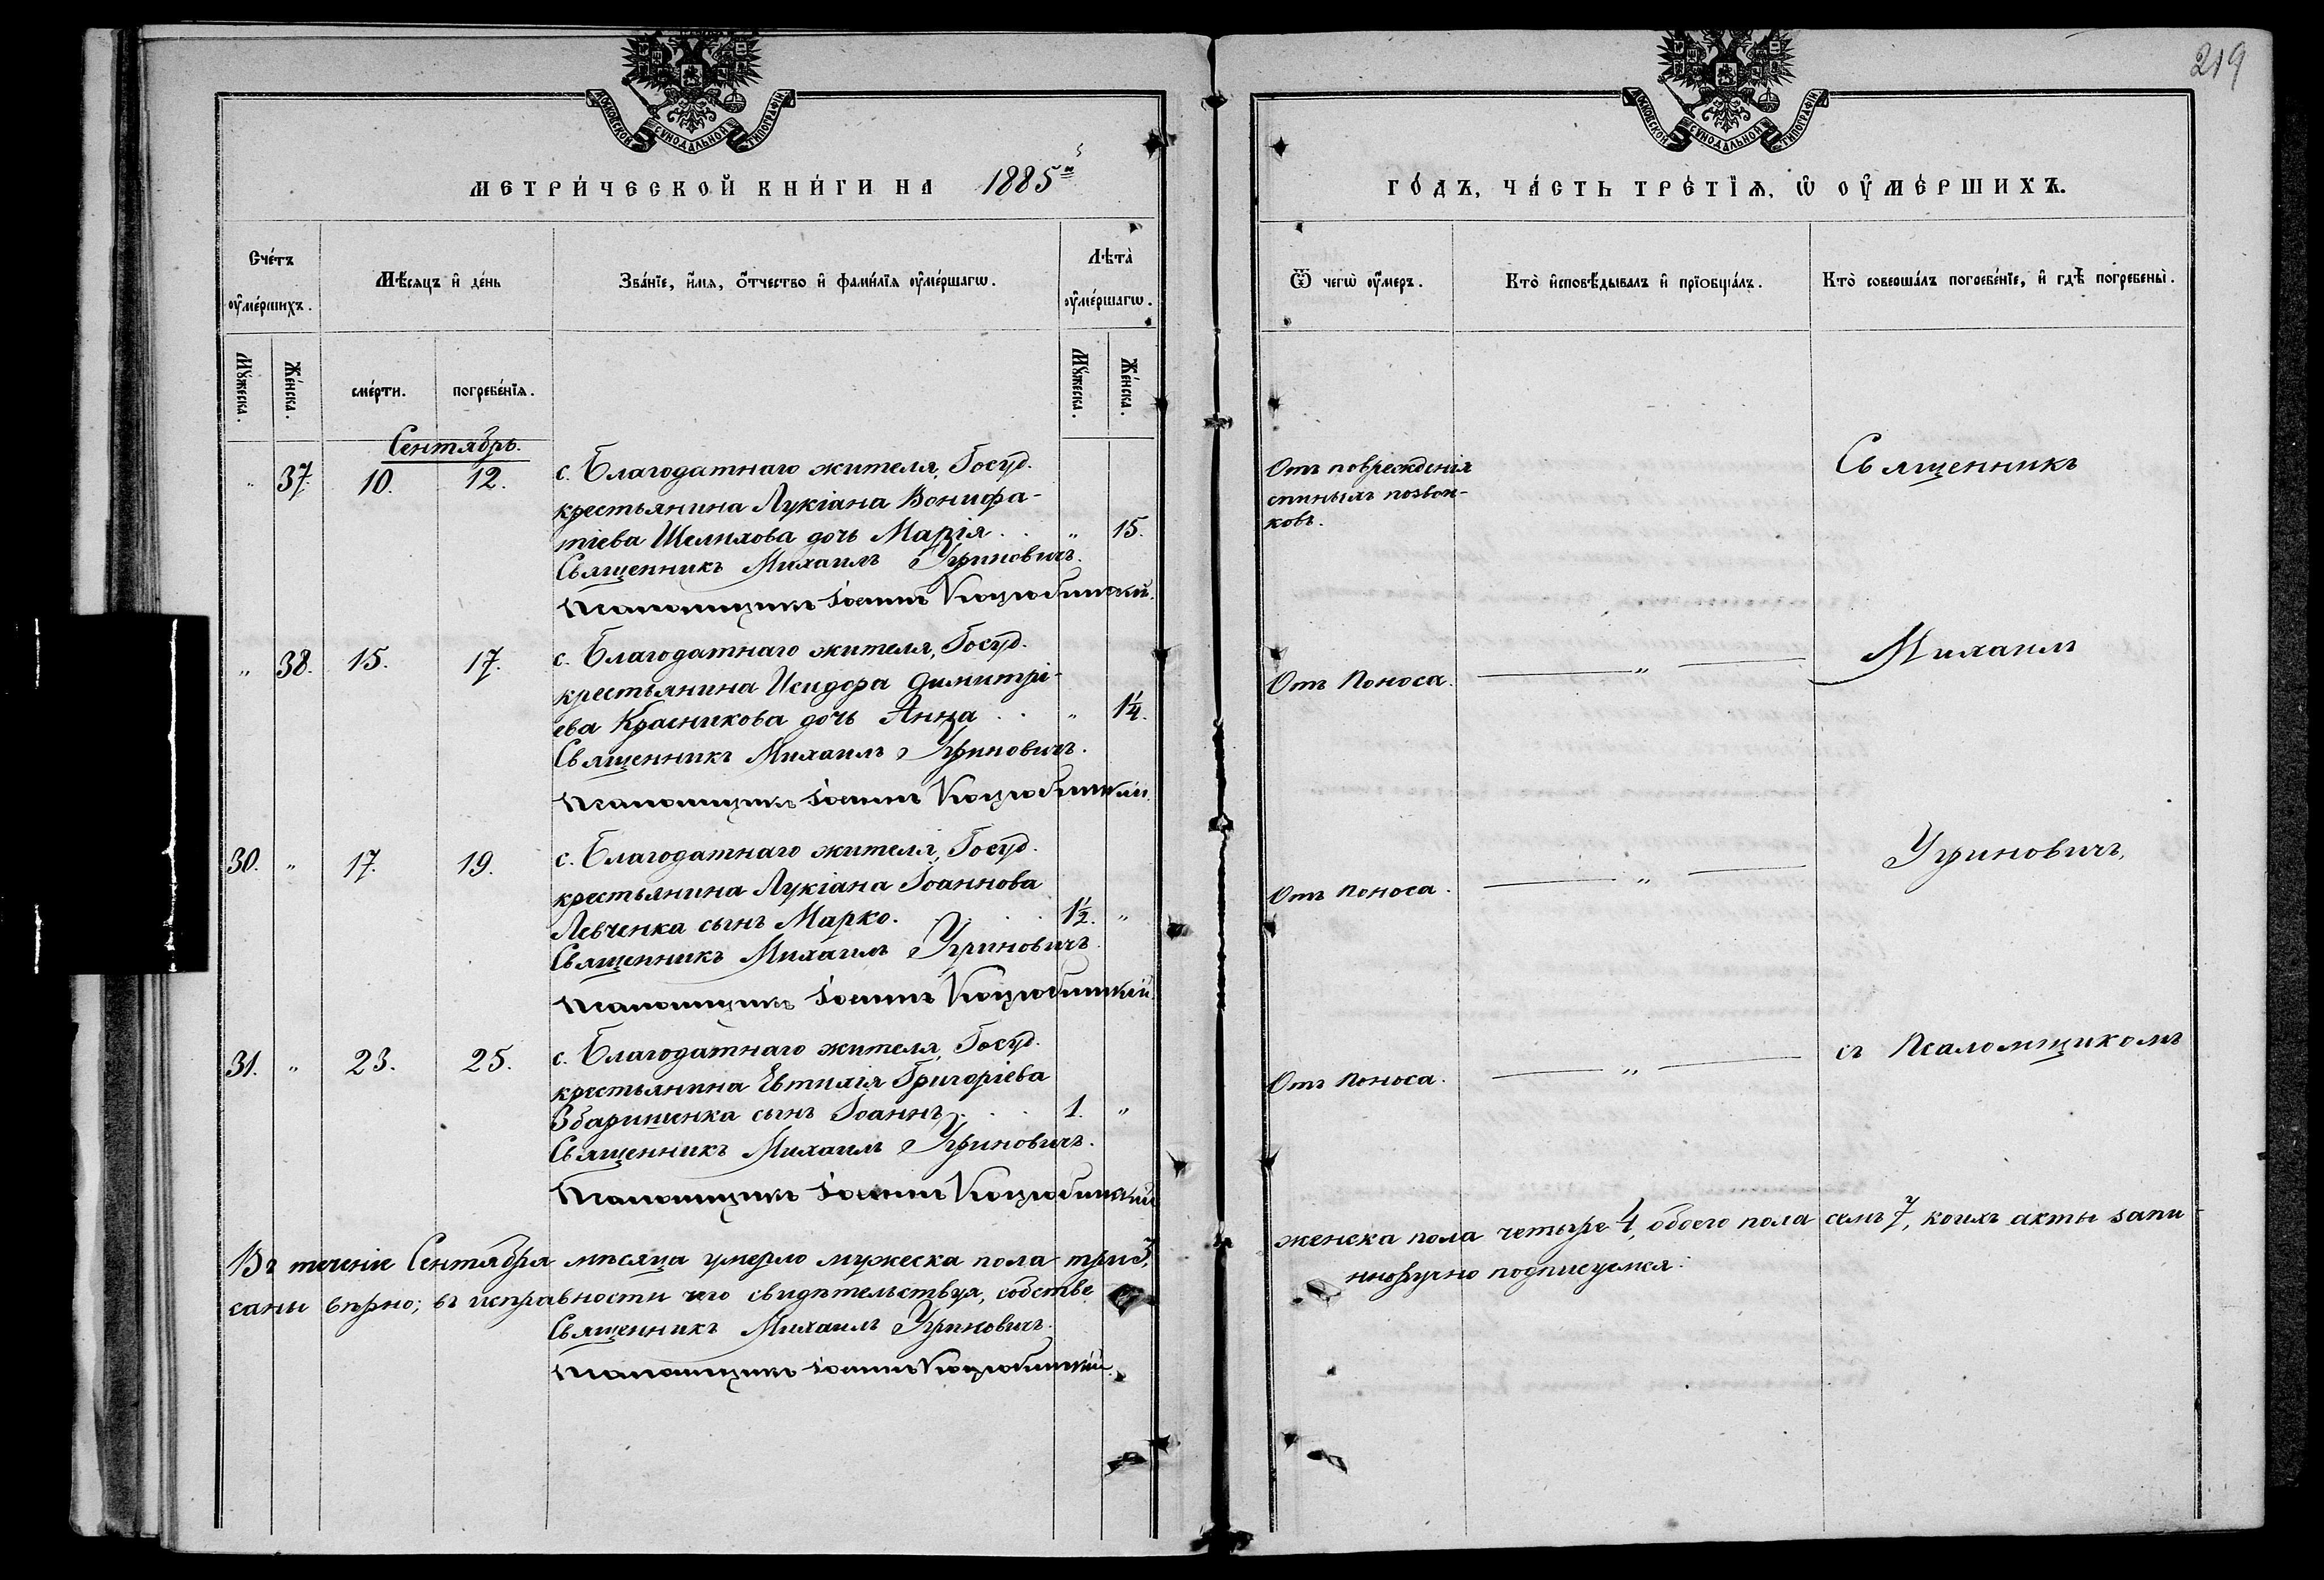 219
МОСКОВСКОЙ СѴНОДАЛЬНОЙ ТИПОГРАФІИ
МОСКОВСКОЙ СѴНОДАЛЬНОЙ ТИПОГРАФІИ
МЕТРИ́ЧЕСКОЙ КНИ́ГИ НА 1885й
ГО́ДЪ, ЧА́СТЬ ТРЕ́ТІѦ, Ѡ ОУМЕ́РШИХЪ.
Сче́тъ оумéршихъ.
Мѣ́сяцъ и де́нь
Зва́нїе, и́мя, о́тчество и фами́лїя оумéршагѡ.
Лѣта̀ оумéршагѡ.
Ѿ чегѡ̀ оу́меръ.
Кто̀ исповѣ́дывалъ и прїобща́лъ.
Кто̀ соверша́лъ погребе́нїе, и гдѣ̀ погребены̀.
Му́жеска.
Же́нска.
сме́рти.
погребе́нїя.
Му́жеска.
Же́нска.
Сентябрь.
" 37. 10. 12. с. Благодатнаго жителя, Госуд.
крестьянина Лукіана Вонифа-
тіева Шелихова дочь Марія . . " 15.
Священникъ Михаилъ Угриновичъ.
Псаломщикъ Іоаннъ Коцюбинскій.
Отъ поврежденія
спиныхъ позвон-
ковъ.
Священникъ
" 38. 15. 17. с. Благодатнаго жителя, Госуд.
крестьянина Исидора Димитрі-
ева Красникова дочь Анна . . " 1¼.
Священникъ Михаилъ Угриновичъ.
Псаломщикъ Іоаннъ Коцюбинскій.
Отъ поноса. — " —
Михаилъ
30. " 17. 19. с. Благодатнаго жителя, Госуд.
крестьянина Лукіана Іоаннова
Левченка сынъ Марко. . . . 1½. "
Священникъ Михаилъ Угриновичъ.
Псаломщикъ Іоаннъ Коцюбинскій.
Отъ поноса. — " —
Угриновичъ,
31. " 23. 25. с. Благодатнаго жителя, Госуд.
крестьянина Евтихія Григоріева
Збаришенка сынъ Іоаннъ. . . 1. "
Священникъ Михаилъ Угриновичъ.
Псаломщикъ Іоаннъ Коцюбинскій
Отъ поноса. — " —
съ Псаломщикомъ
Въ теченіе Сентября мѣсяца умерло мужеска пола три 3,
женска пола четыре 4, обоего пола семь 7, коихъ акты запи-
саны вѣрно; въ исправности чего свидѣтельствуя, собстве
нноручно подписуемся:
Священникъ Михаилъ Угриновичъ.
Псаломщикъ Іоаннъ Коцюбинскій.